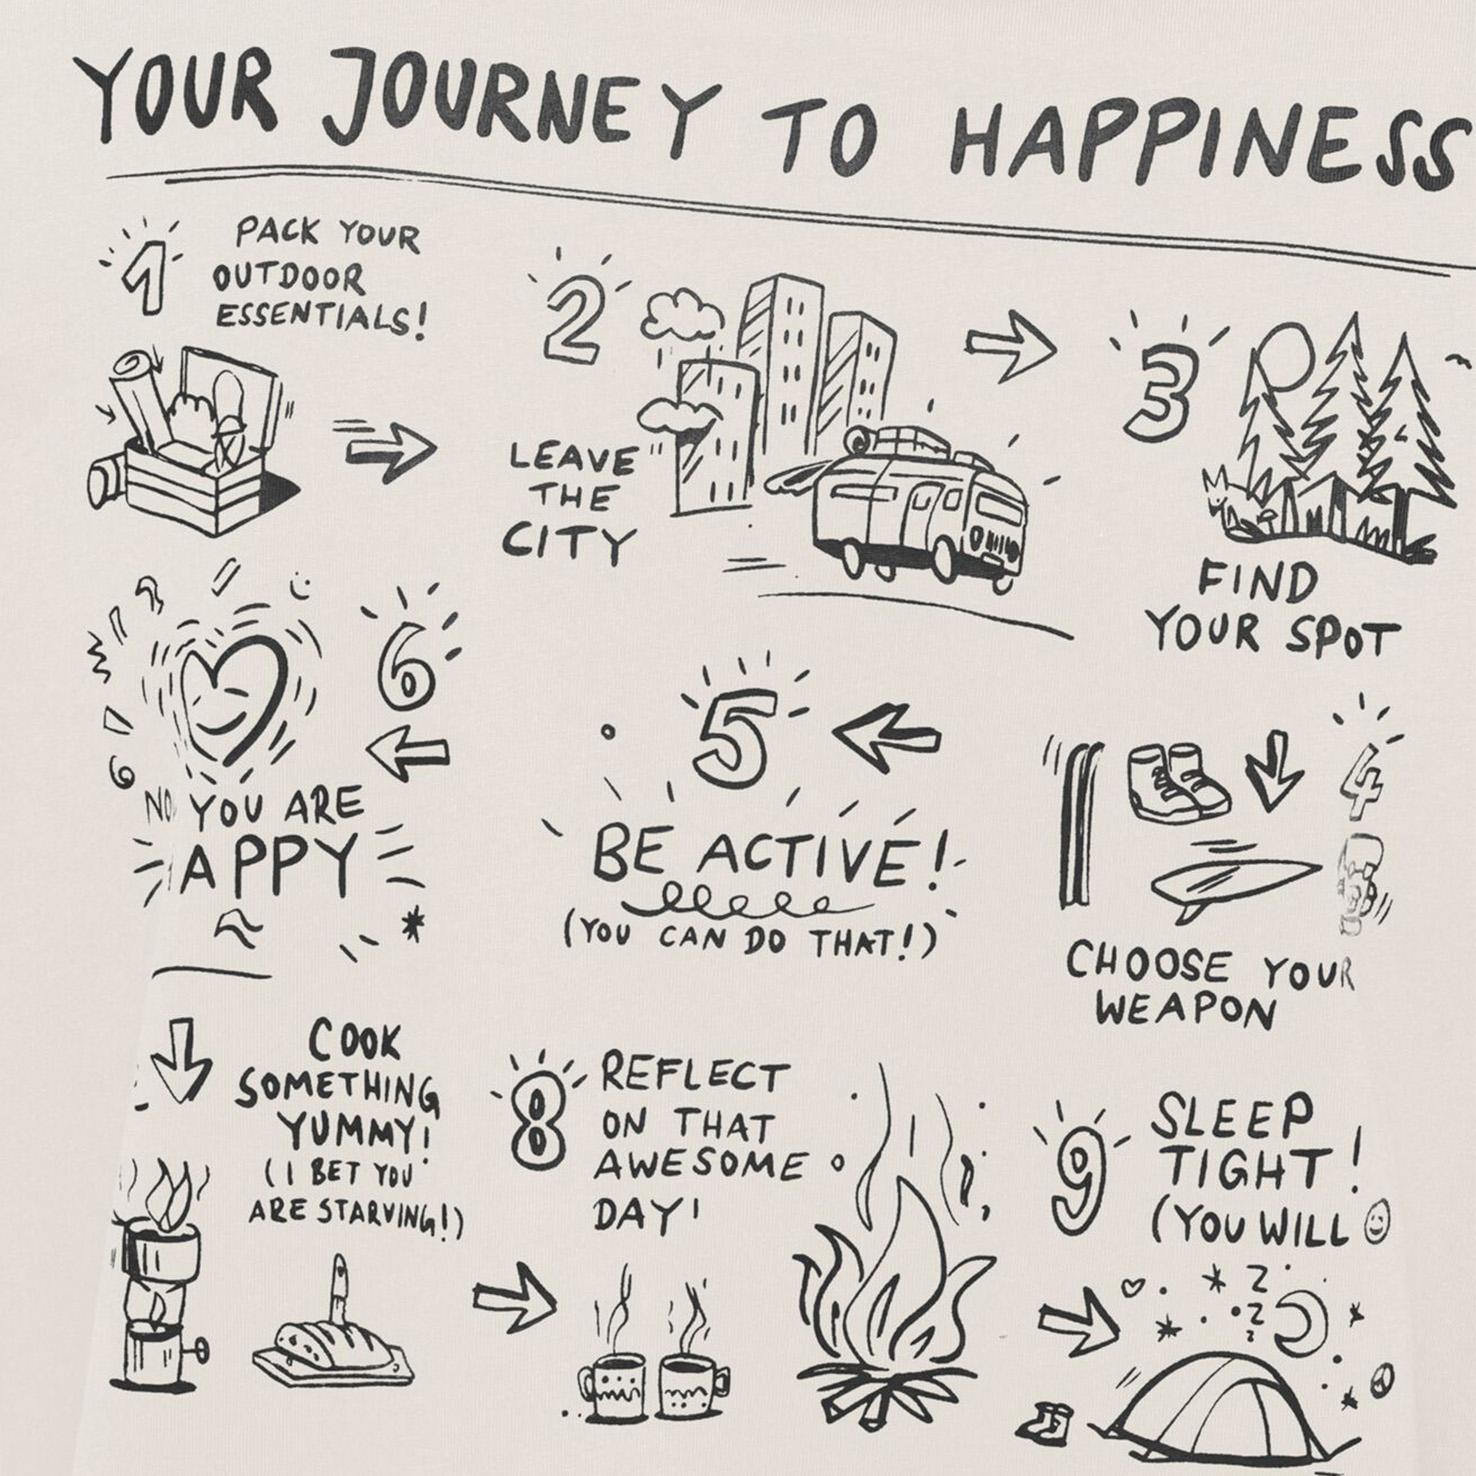 YOUR JOURNEY TO HAPPINESS
1
PACK YOUR
OUTDOOR
ESSENTIALS!
2
LEAVE
THE
CITY
3
FIND
YOUR SPOT
4
CHOOSE YOUR
WEAPON
5
BE ACTIVE!
(YOU CAN DO THAT!)
6
NO YOU ARE
APPY
COOK
SOMETHING
YUMMY!
(I BET YOU
ARE STARVING!)
8
REFLECT
ON THAT
AWESOME
DAY!
9
SLEEP
TIGHT!
(YOU WILL ☺
Z
Z
Z